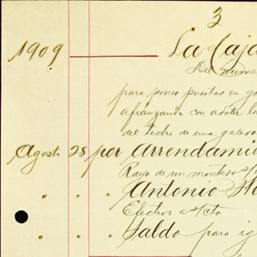 3
1909 La Caja
De nume
para poner puertas en ga
afianzando con adobe la
del techo de una galera
Agosto 28 por Arrendami
Raya de un montero s/
Antonio
Efectivo a s/cta
" " " Saldo para ig